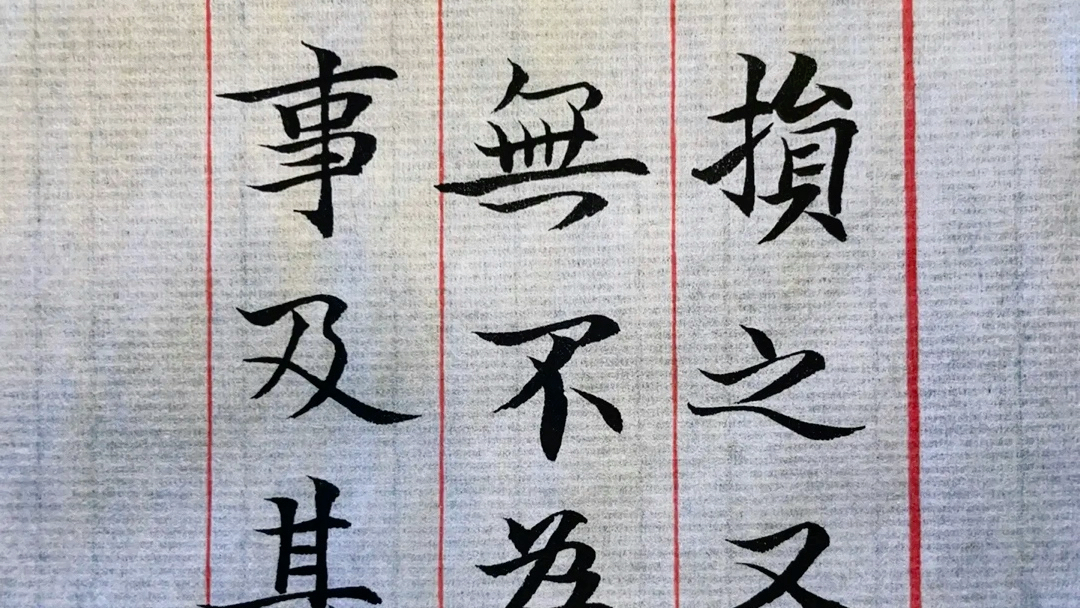 損之又
無不為
事及其